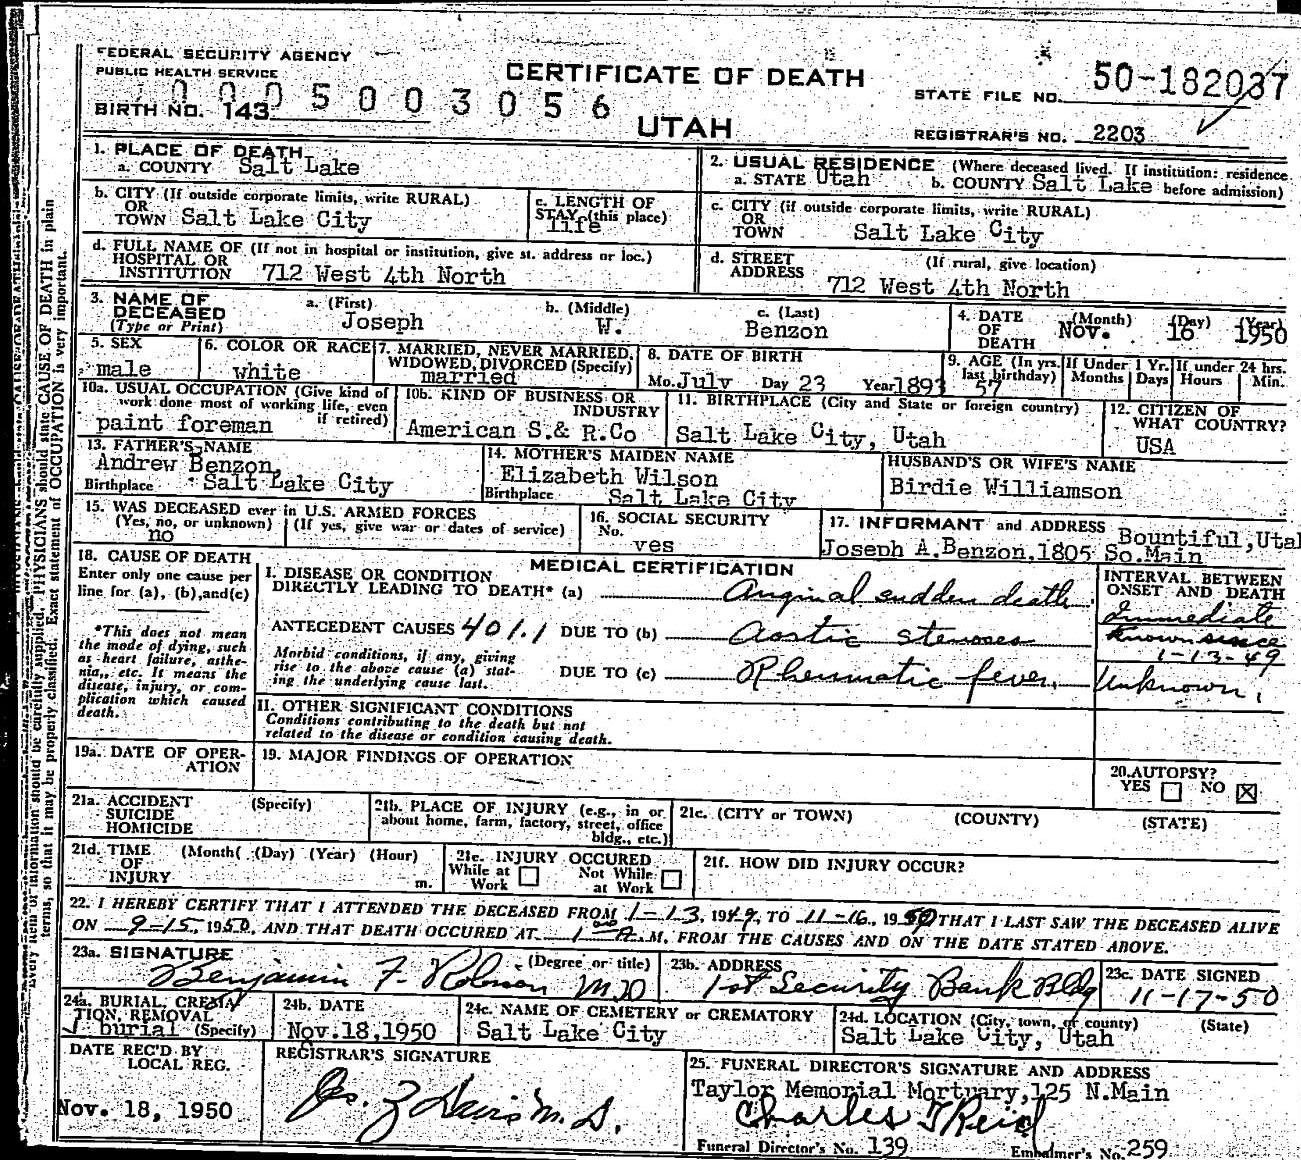 FEDERAL SECURITY AGENCY
PUBLIC HEALTH SERVICE
CERTIFICATE OF DEATH
UTAH
STATE FILE NO. 50-182037
BIRTH NO. 143
0005003056
REGISTRAR'S NO. 2203
1. PLACE OF DEATH
a. COUNTY Salt Lake
b. CITY (If outside corporate limits, write RURAL)
OR
TOWN Salt Lake City
c. LENGTH OF
STAY (this place)
life
d. FULL NAME OF (If not in hospital or institution, give st. address or loc.)
HOSPITAL OR
INSTITUTION 712 West 4th North
2. USUAL RESIDENCE (Where deceased lived. If institution: residence
a. STATE Utah b. COUNTY Salt Lake before admission)
c. CITY (if outside corporate limits, write RURAL)
OR
TOWN Salt Lake City
d. STREET (If rural, give location)
ADDRESS 712 West 4th North
3. NAME OF
DECEASED
(Type or Print)
a. (First) Joseph
b. (Middle) W.
c. (Last) Benzon
4. DATE (Month) (Day) (Year)
OF
DEATH Nov. 16 1950
5. SEX
male
6. COLOR OR RACE
white
7. MARRIED, NEVER MARRIED,
WIDOWED, DIVORCED (Specify)
married
8. DATE OF BIRTH
Mo. July Day 23 Year 1893
9. AGE (In yrs.
last birthday)
57
If Under 1 Yr.
Months Days
If under 24 hrs.
Hours Min.
10a. USUAL OCCUPATION (Give kind of
work done most of working life, even
if retired)
paint foreman
10b. KIND OF BUSINESS OR
INDUSTRY
American S.& R.Co
11. BIRTHPLACE (City and State or foreign country)
Salt Lake City, Utah
12. CITIZEN OF
WHAT COUNTRY?
USA
13. FATHER'S NAME
Andrew Benzon,
Birthplace Salt Lake City
14. MOTHER'S MAIDEN NAME
Elizabeth Wilson
Birthplace Salt Lake City
HUSBAND'S OR WIFE'S NAME
Birdie Williamson
15. WAS DECEASED ever in U.S. ARMED FORCES
(Yes, no, or unknown) (If yes, give war or dates of service)
no
16. SOCIAL SECURITY
No.
yes
17. INFORMANT and ADDRESS Bountiful, Utah
Joseph A.Benzon,1805 So.Main
18. CAUSE OF DEATH
Enter only one cause per
line for (a), (b), and (c)
*This does not mean
the mode of dying, such
as heart failure, asthe-
nia, etc. It means the
disease, injury, or com-
plication which caused
death.
MEDICAL CERTIFICATION
I. DISEASE OR CONDITION
DIRECTLY LEADING TO DEATH* (a) Anginal sudden death
ANTECEDENT CAUSES 401.1 DUE TO (b) Aostic stenoses
Morbid conditions, if any, giving
rise to the above cause (a) stat-
ing the underlying cause last.
DUE TO (c) Rheumatic fever.
INTERVAL BETWEEN
ONSET AND DEATH
Immediate
Known since
1-13-49
Unknown.
II. OTHER SIGNIFICANT CONDITIONS
Conditions contributing to the death but not
related to the disease or condition causing death.
19a. DATE OF OPER-
ATION
19. MAJOR FINDINGS OF OPERATION
20. AUTOPSY?
YES NO X
21a. ACCIDENT (Specify)
SUICIDE
HOMICIDE
21b. PLACE OF INJURY (e.g., in or
about home, farm, factory, street, office
bldg., etc.)
21c. (CITY or TOWN) (COUNTY) (STATE)
21d. TIME (Month( (Day) (Year) (Hour)
OF
INJURY m.
21e. INJURY OCCURED
While at Not While
Work at Work
21f. HOW DID INJURY OCCUR?
22. I HEREBY CERTIFY THAT I ATTENDED THE DECEASED FROM 1-13, 1949, TO 11-16, 1950 THAT I LAST SAW THE DECEASED ALIVE
ON 9-15, 1950, AND THAT DEATH OCCURED AT 1 00 A.M. FROM THE CAUSES AND ON THE DATE STATED ABOVE.
23a. SIGNATURE (Degree or title)
Benjamin F. Robison MD
23b. ADDRESS
1st Security Bank Bldg
23c. DATE SIGNED
11-17-50
24a. BURIAL, CREMA
TION, REMOVAL
burial (Specify)
24b. DATE
Nov.18,1950
24c. NAME OF CEMETERY or CREMATORY
Salt Lake City
24d. LOCATION (City, town, or county) (State)
Salt Lake City, Utah
DATE REC'D BY
LOCAL REG.
Nov. 18, 1950
REGISTRAR'S SIGNATURE
M.D.
25. FUNERAL DIRECTOR'S SIGNATURE AND ADDRESS
Taylor Memorial Mortuary,125 N.Main
Charles T Reid
Funeral Director's No. 139 Embalmer's No. 259
Every item of information should be carefully supplied. PHYSICIANS should state CAUSE OF DEATH in plain
terms, so that it may be properly classified. Exact statement of OCCUPATION is very important.